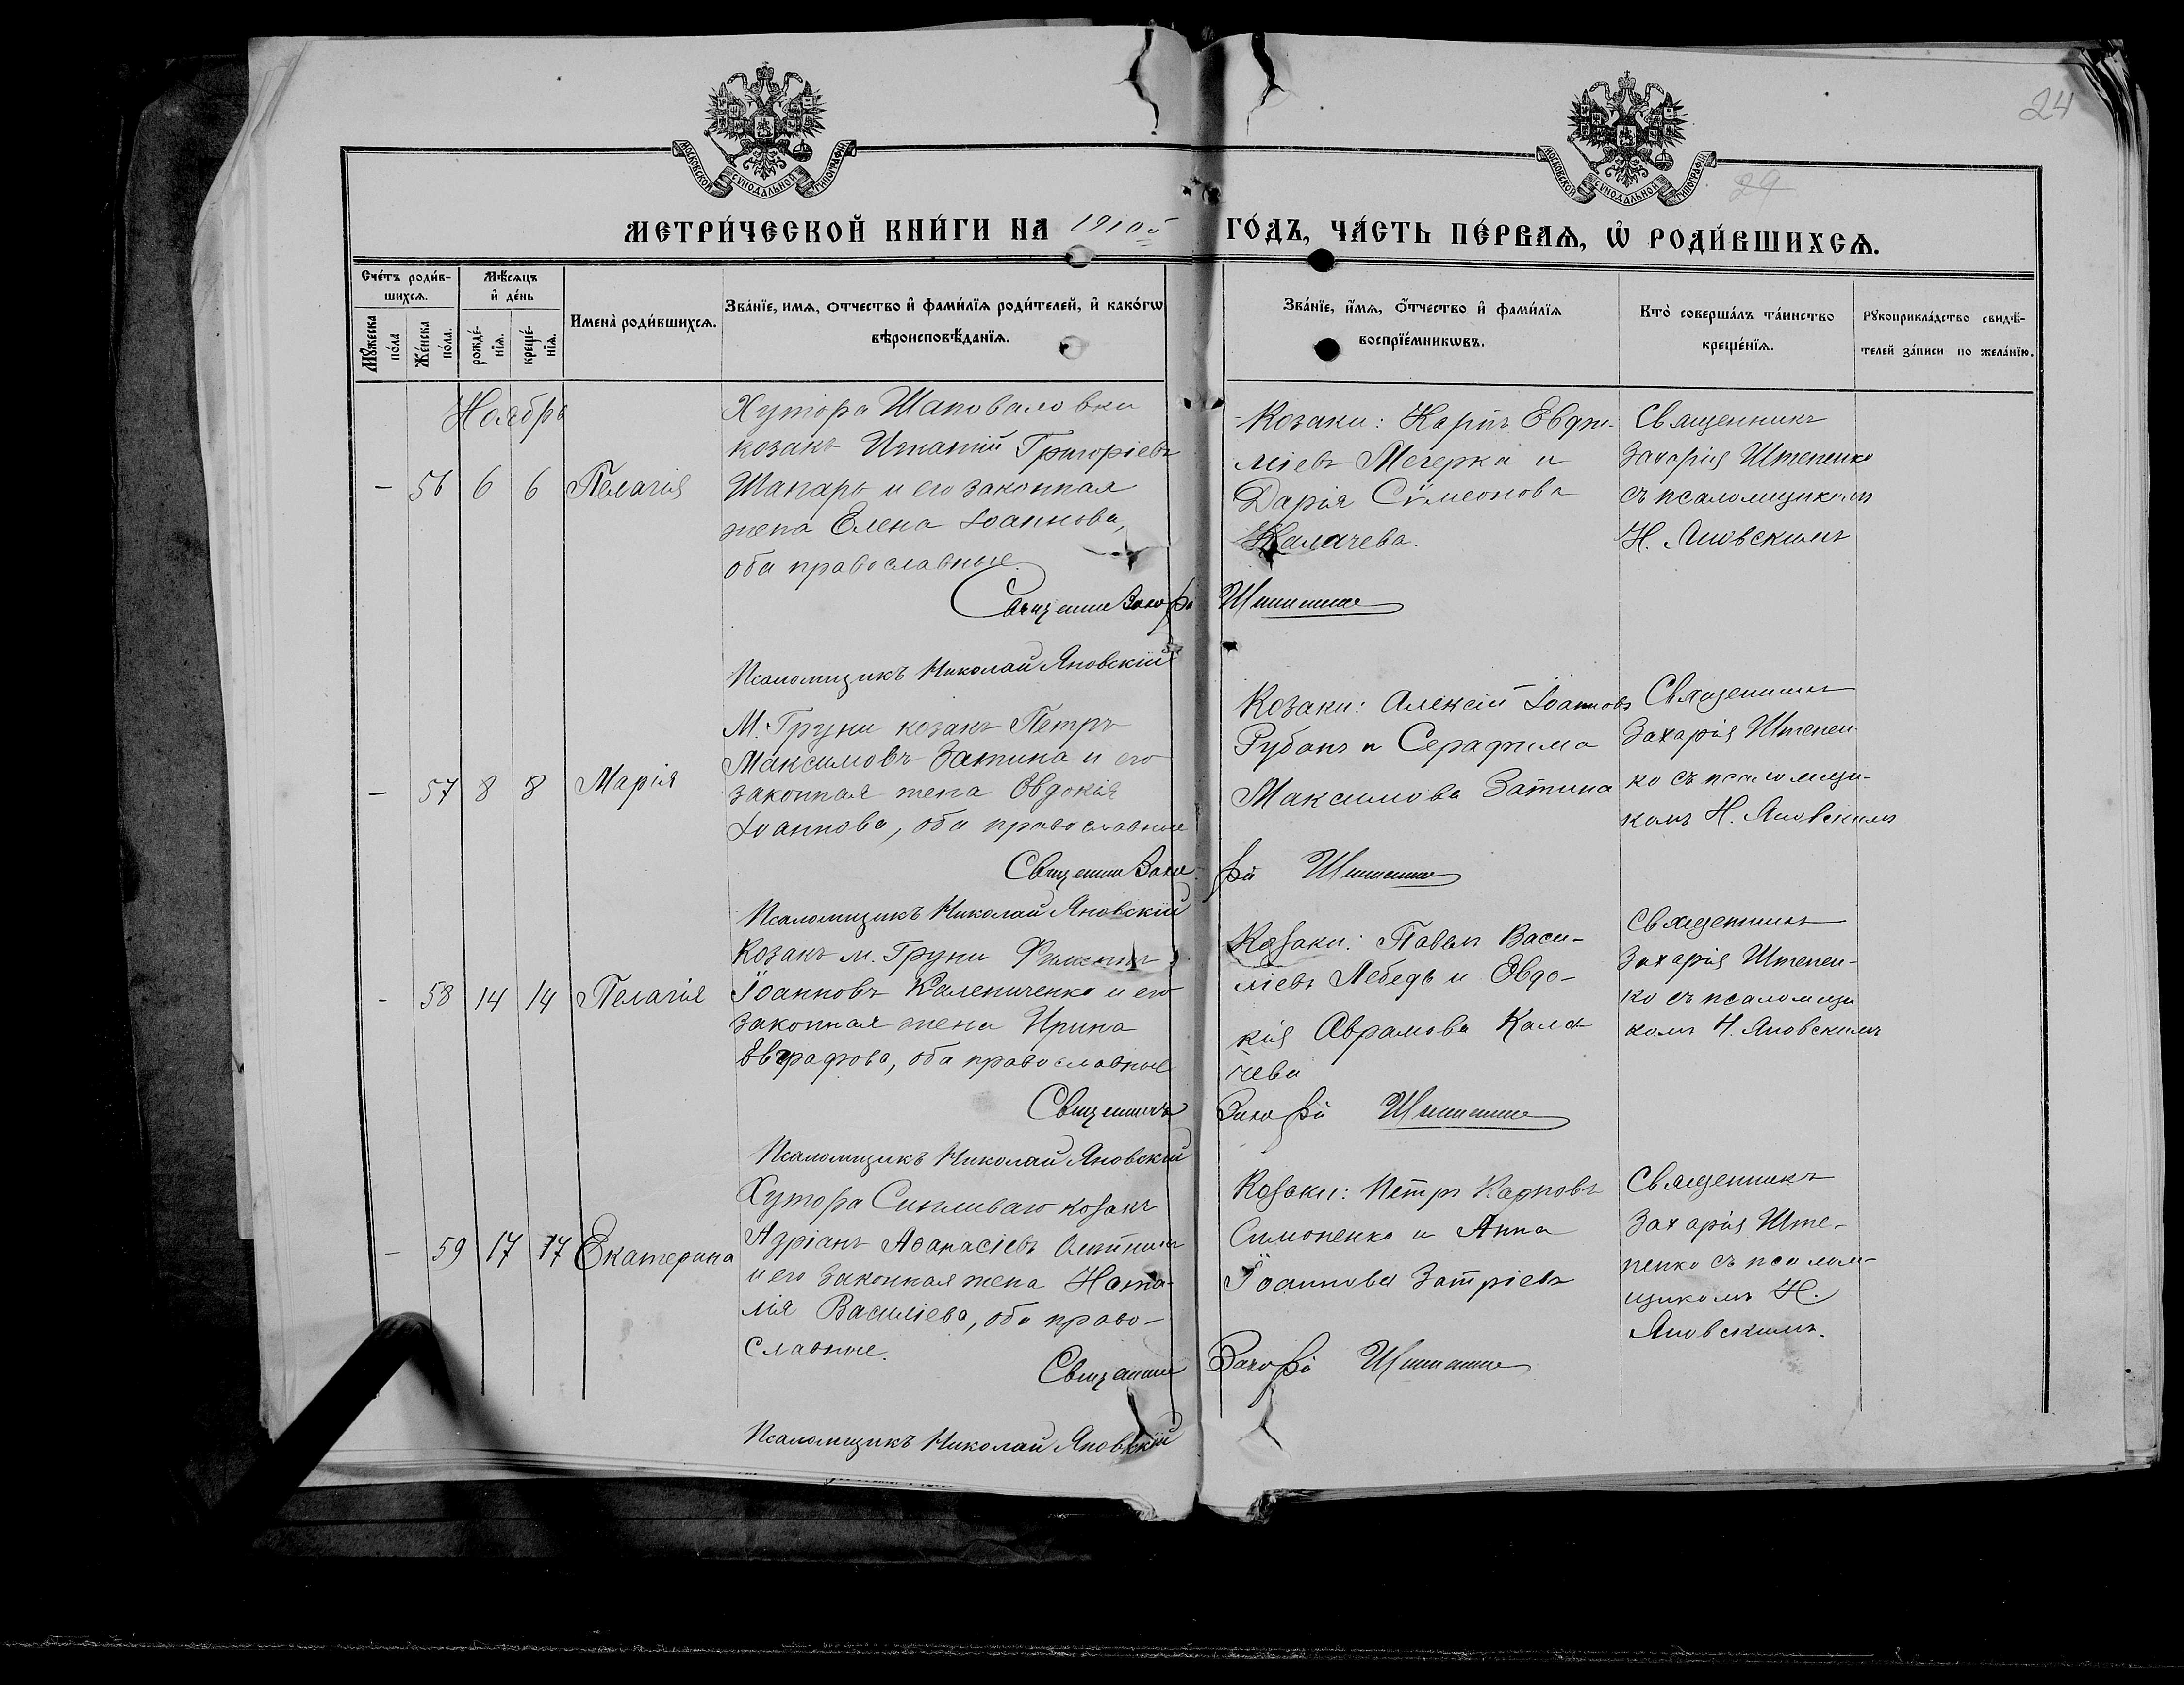 24
29
МОСКОВСКОЙ СѴНОДАЛЬНОЙ ТИПОГРАФІИ
МОСКОВСКОЙ СѴНОДАЛЬНОЙ ТИПОГРАФІИ
МЕТРИ́ЧЕСКОЙ КНИ́ГИ НА 1910й ГО́ДЪ, ЧА́СТЬ ПЕ́РВАѦ, Ѽ РОДИ́ВШИХСѦ.
Сче́тъ роди́в-
шихсѧ.
Мꙋ́жеска
по́ла
Же́нска
по́ла.
Мѣ́сѧцъ
и҆ де́нь
рожде́-
нїѧ.
креще́-
нїѧ.
Имена̀ роди́вшихсѧ.
Зва́нїе, имѧ, отчество и҆ фами́лїѧ роди́телей, и҆ како́гѡ
вѣроисповѣ́данїѧ.
Зва́нїе, и҆́мѧ, о҆́тчество и҆ фами́лїѧ
воспрїе́мникѡвъ.
Кто̀ соверша́лъ та́инство
креще́нїѧ.
Рꙋкоприкла́дство свидѣ́-
телей за́писи по жела́нїю.
Ноябрь
- 56 6 6 Пелагія
Хутора Шаповаловки
козакъ Игнатій Григоріевъ
Шапарь и его законная
жена Елена Іоаннова,
оба православные.
Козаки: Карпъ Евфи-
міевъ Мечерка и
Дарія Сѵмеонова
Калачева.
Священникъ
Захарія Штепенко
съ псаломщикомъ
Н. Яновскимъ
Священникъ Захарія Штепенко
Псаломщикъ Николай Яновскій
- 57 8 8 Марія
М. Груни козакъ Петръ
Максимовъ Затина и его
законная жена Евдокія
Іоаннова, оба православные
Козаки: Алексій Іоанновъ
Рубанъ и Серафима
Максимова Затина
Священникъ
Захарія Штепен-
ко съ псаломщи-
комъ Н. Яновскимъ
Священникъ Захарія Штепенко
Псаломщикъ Николай Яновскій
- 58 14 14 Пелагія
Козакъ м. Груни
Іоанновъ Калениченко и его
законная жена Ирина
Евграфова, оба православные
Козаки: Павелъ Васи-
ліевъ Лебедь и Евдо-
кія Аврамова Кала-
чева
Священникъ
Захарія Штепен-
ко съ псаломщи
комъ Н. Яновскимъ
Священникъ Захарія Штепенко
Псаломщикъ Николай Яновскій
- 59 17 17 Екатерина
Хутора козакъ
Адріанъ Аѳанасіевъ
и его законная жена Ната-
лія Василіева, оба право-
славные.
Козаки: Петръ Карповъ
Симоненко и Анна
Іоаннова
Священникъ
Захарія Ште-
пенко съ псалом-
щикомъ Н.
Яновскимъ.
Священникъ Захарія Штепенко
Псаломщикъ Николай Яновскій